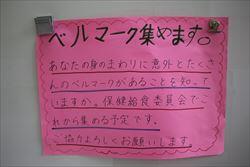 ベルマーク集めます。
あなたの身のまわりに意外とたくさ
んのベルマークがあることを知って
いますか。保健給食委員会でこ
れから集める予定です。
ご協力よろしくお願いします。